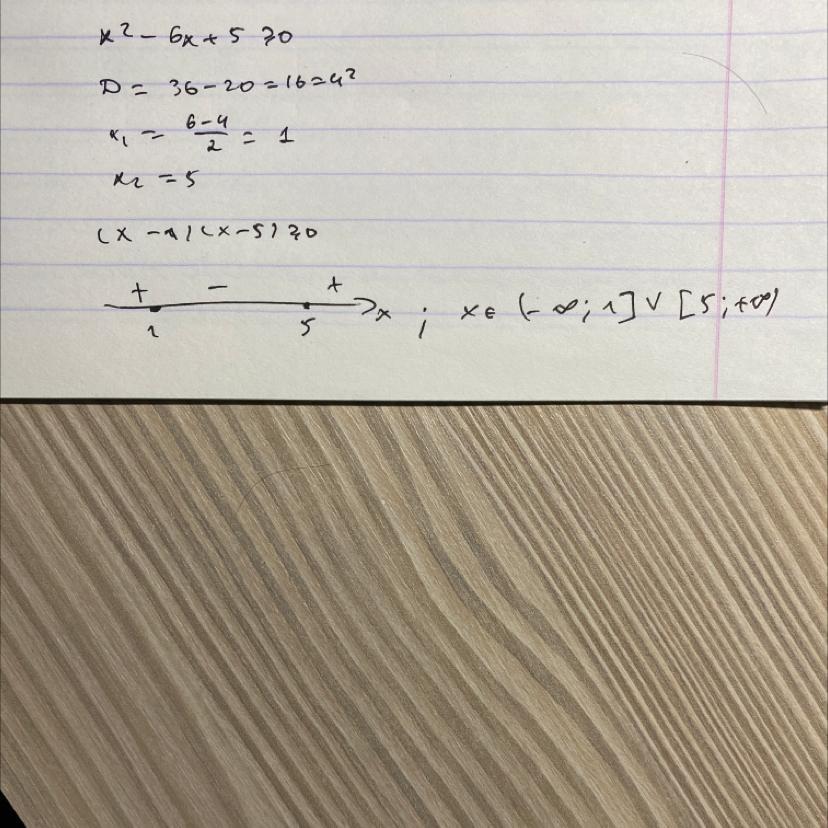 x² - 6x + 5 ≥ 0
D = 36 - 20 = 16 = 4²
x₁ = (6-4)/2 = 1
x₂ = 5
(x - 1)(x - 5) ≥ 0
+ - +
1 5 x ; x ∈ (-∞; 1] ∨ [5; +∞)